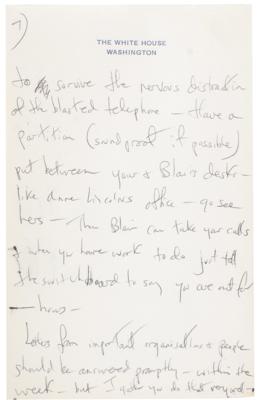 7)
THE WHITE HOUSE
WASHINGTON
to survive the nervous distraction
of the blasted telephone — Have a
partition (soundproof if possible)
put between your & Blair's desk —
like Anne Lincoln's office — go see
hers — Then Blair can take your calls
when you have work to do just tell
the switchboard to say you are out for
— hours —
Letters from important organisations & people
should be answered promptly — within the
week — but I you do that anyway —